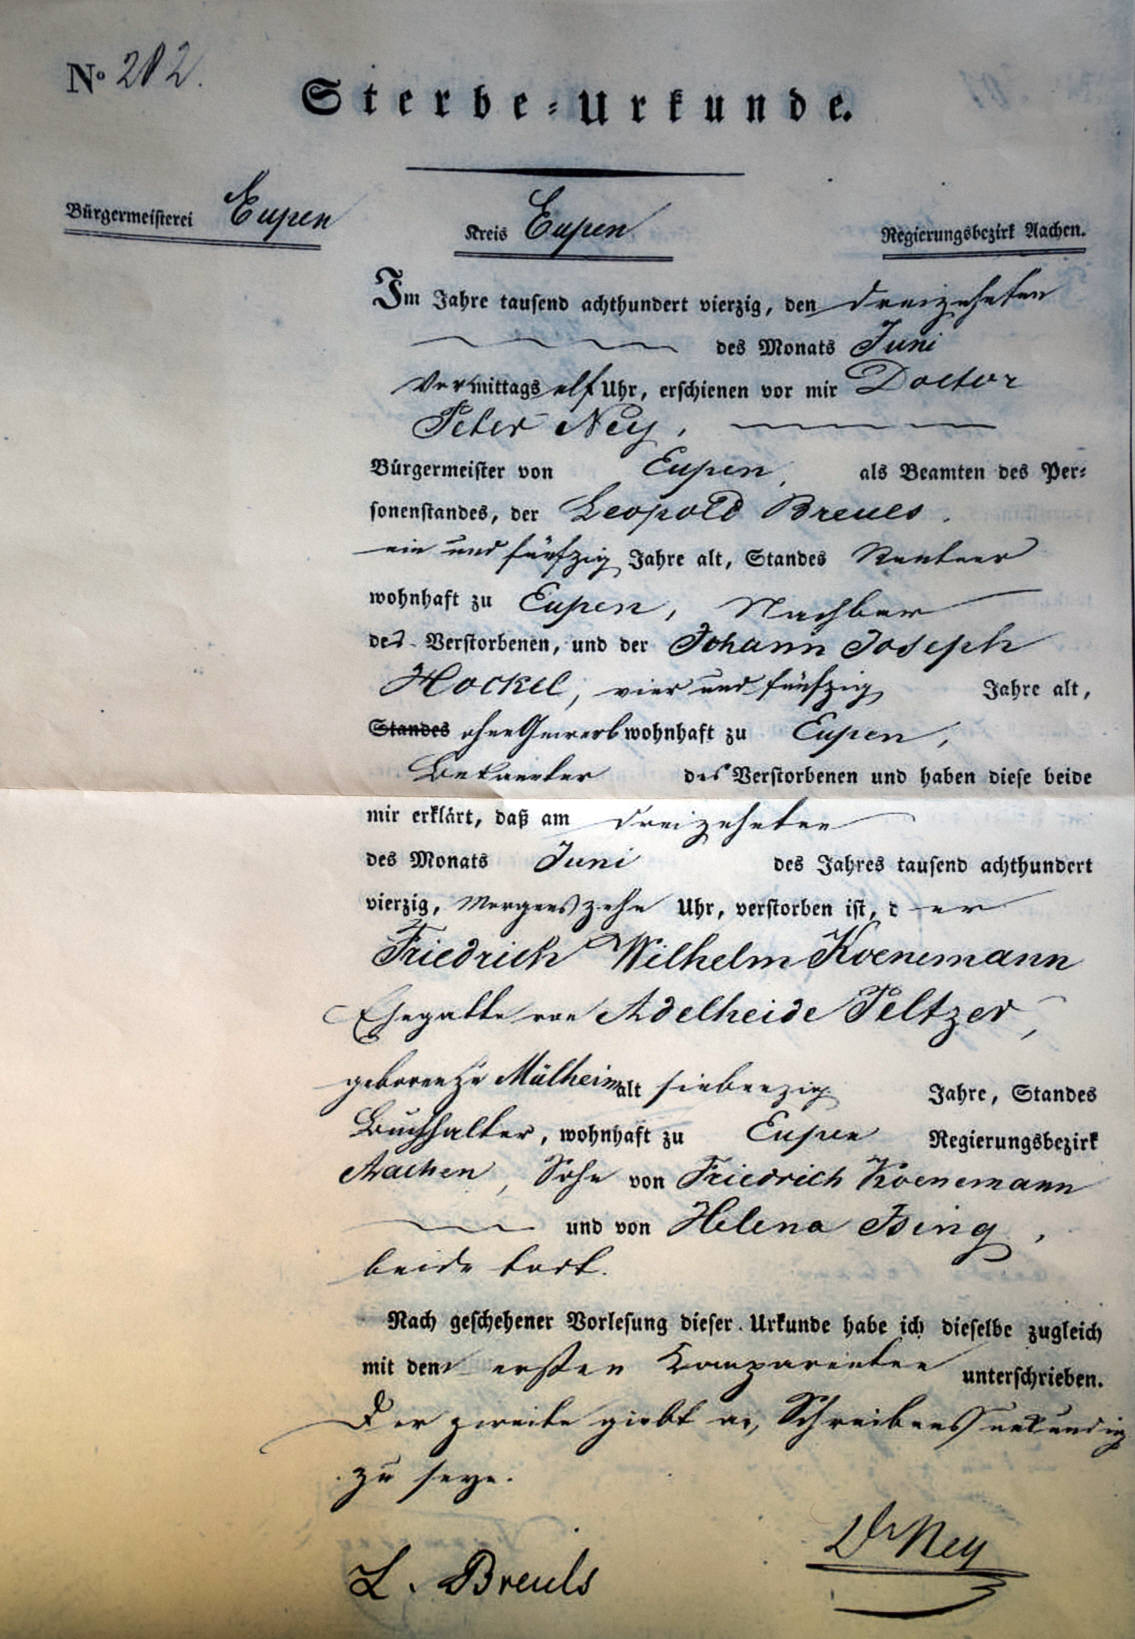 No 202.
Sterbe-Urkunde.
Bürgermeisterei Eupen Kreis Eupen Regierungsbezirk Aachen.
Im Jahre tausend achthundert vierzig, den dreizehnten
des Monats Juni
Vormittags elf Uhr, erschienen vor mir Doctor
Peter Ney,
Bürgermeister von Eupen, als Beamten des Per-
sonenstandes, der Leopold Breuls.
ein und fünfzig Jahre alt, Standes Rentner
wohnhaft zu Eupen, Nachbar
des Verstorbenen, und der Johann Joseph
Hockel, vier und fünfzig Jahre alt,
Standes ohne Gewerb wohnhaft zu Eupen,
Bekannter des Verstorbenen und haben diese beide
mir erklärt, daß am dreizehnten
des Monats Juni des Jahres tausend achthundert
vierzig, Morgens zehn Uhr, verstorben ist, der
Friedrich Wilhelm Koenemann
Ehegatte von Adelheide Peltzer,
geboren zu Mülheim alt siebenzig Jahre, Standes
Buchhalter, wohnhaft zu Eupen Regierungsbezirk
Aachen, Sohn von Friedrich Koenemann
und von Helena Ising,
beide todt.
Nach geschehener Vorlesung dieser Urkunde habe ich dieselbe zugleich
mit dem ersten Komparenten unterschrieben.
Der zweite giebt an, Schreibens unkundig
zu seyn.
L. Breuls Dr Ney